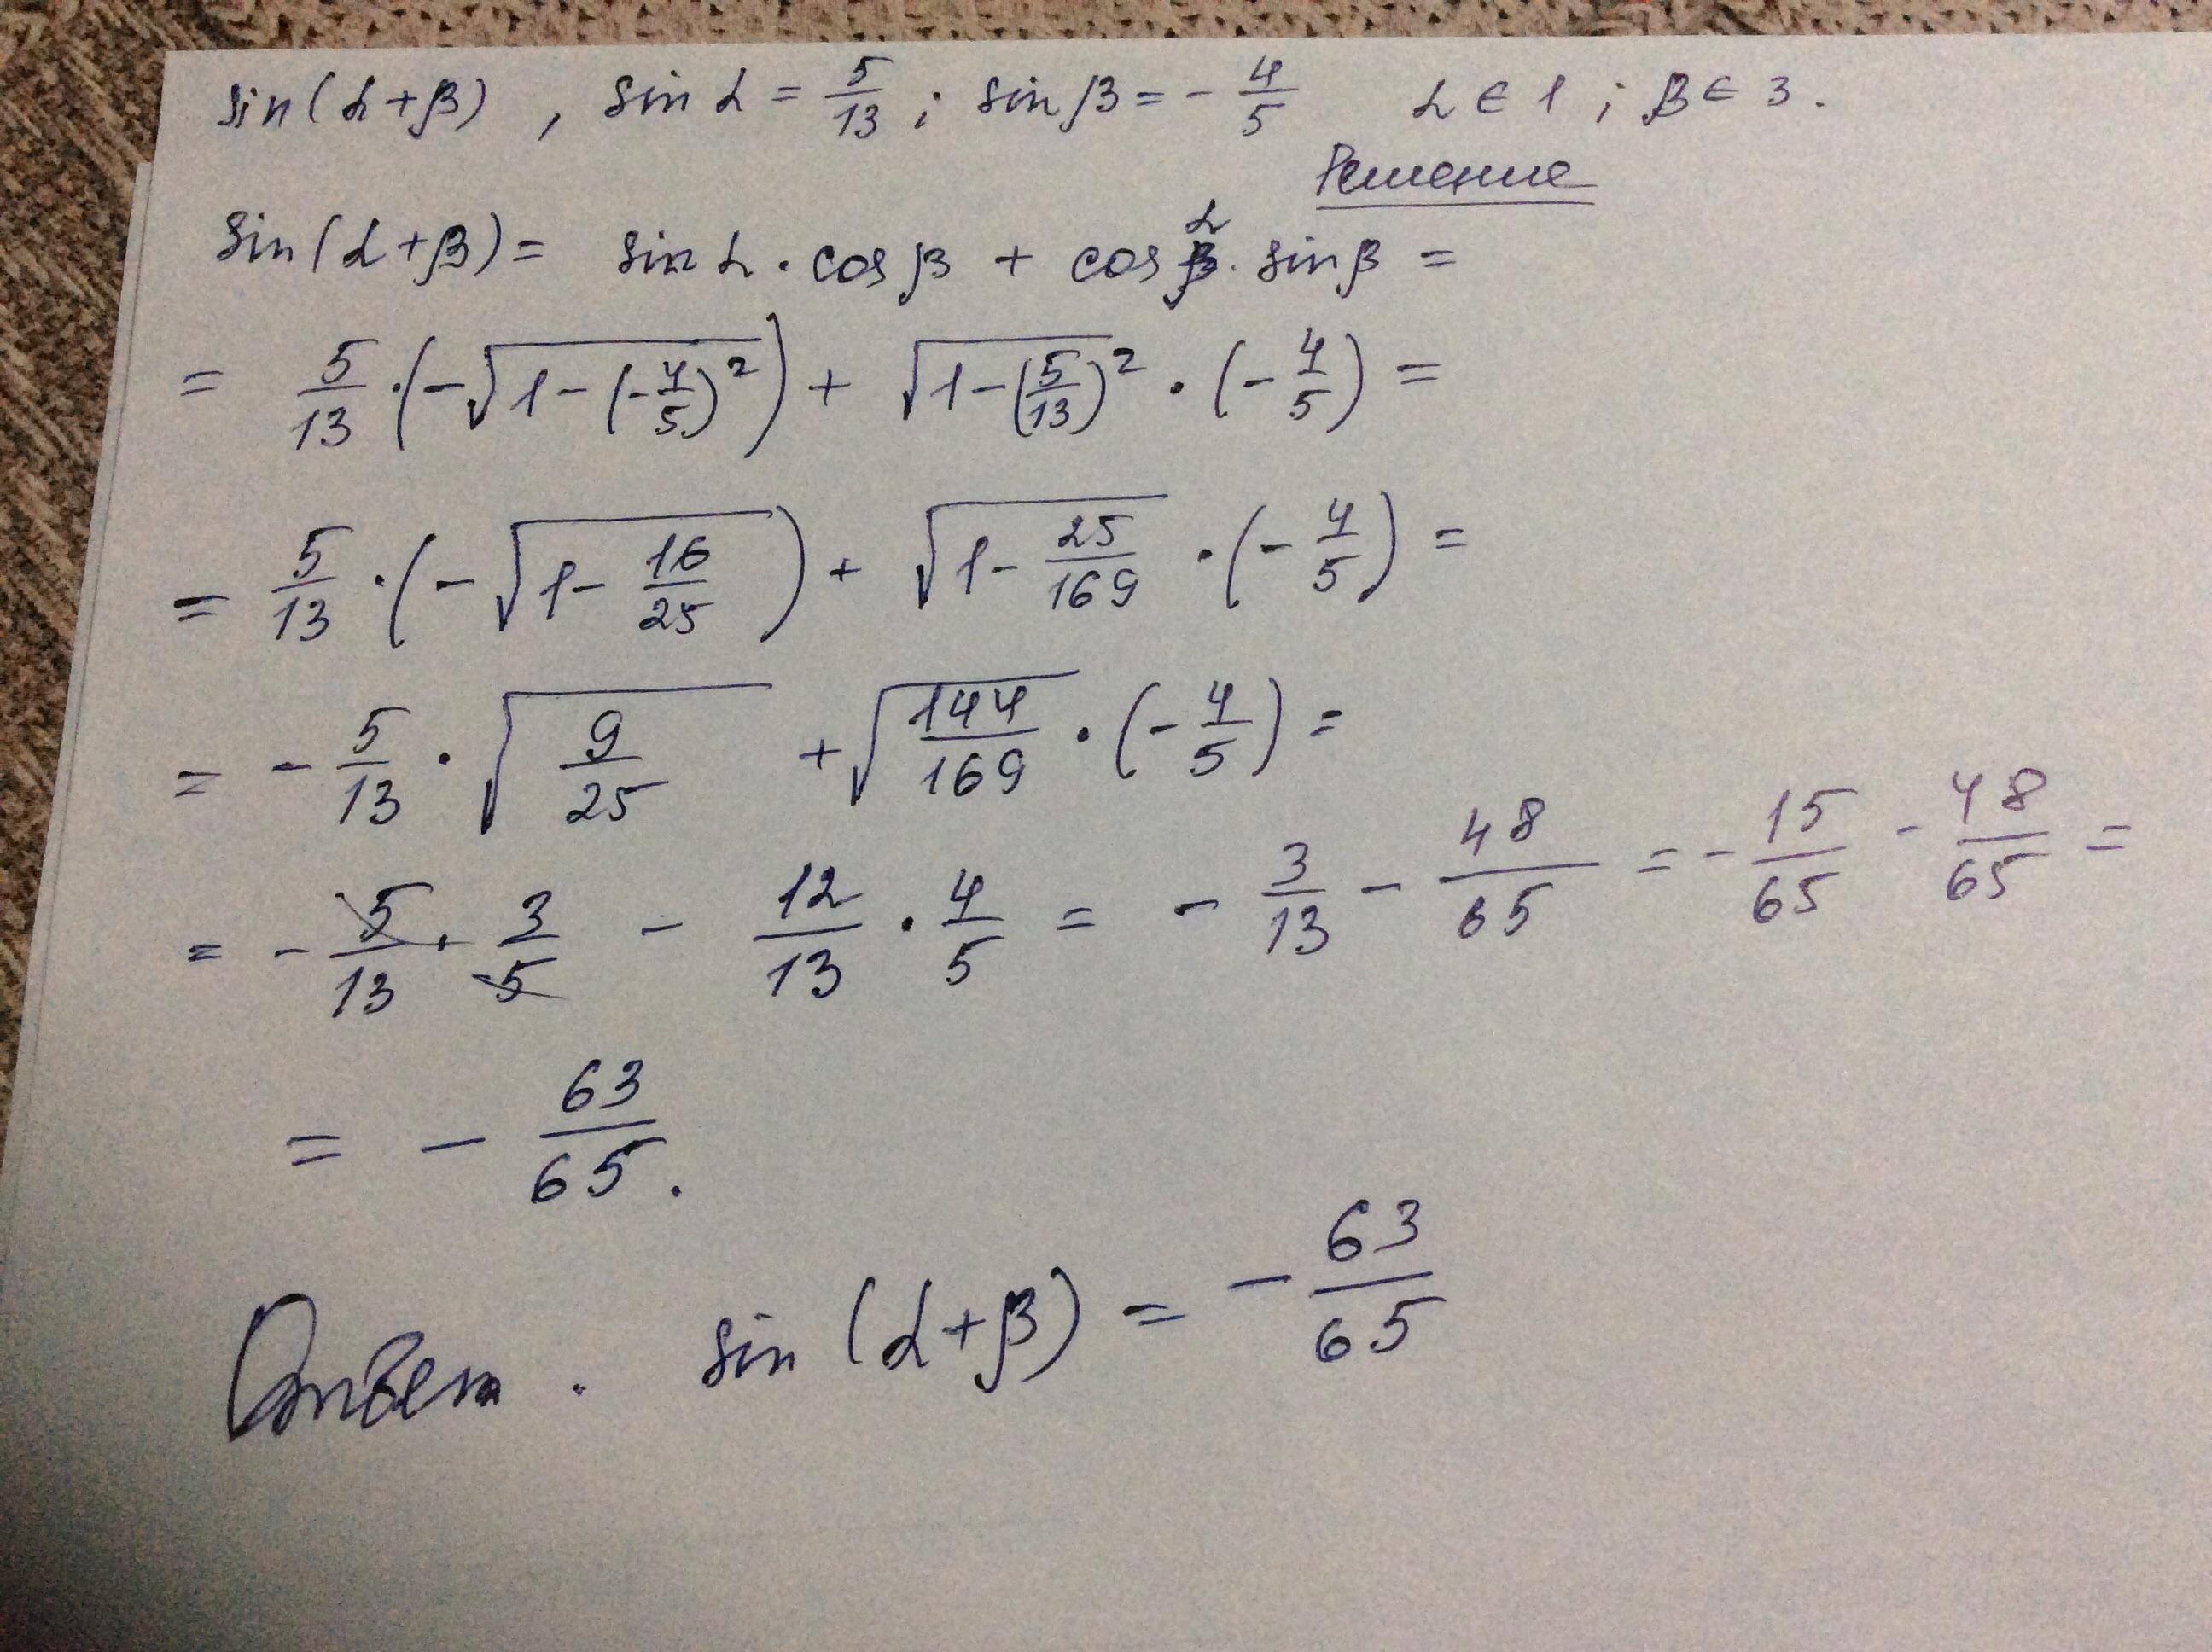 sin(α+β) , sin α = 5/13 ; sin β = - 4/5 α ∈ 1 ; β ∈ 3.
Решение
sin(α+β) = sin α · cos β + cos α · sin β =
= 5/13 · (-√(1-(-4/5)²)) + √(1-(5/13)²) · (-4/5) =
= 5/13 · (-√(1-16/25)) + √(1-25/169) · (-4/5) =
= - 5/13 · √(9/25) + √(144/169) · (-4/5) =
= - 5/13 · 3/5 - 12/13 · 4/5 = - 3/13 - 48/65 = - 15/65 - 48/65 =
= - 63/65.
Ответ. sin (α+β) = - 63/65